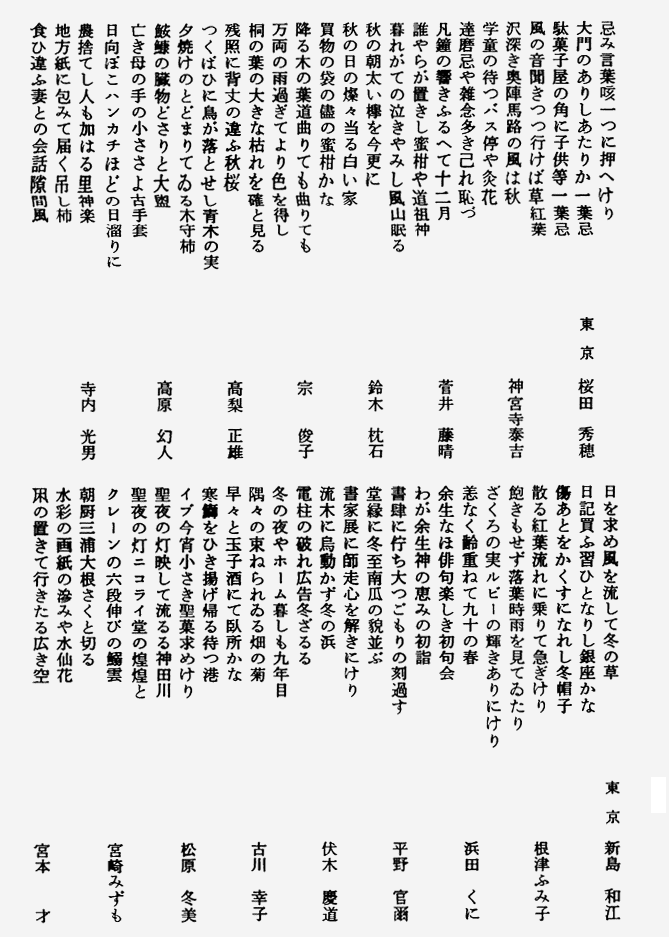 忌み言葉咳一つに押へけり
大門のありしあたりか一葉忌
駄菓子屋の角に子供等一葉忌
東京 桜田 秀穂
風の音聞きつつ行けば草紅葉
沢深き奥陣馬路の風は秋
学童の待つバス停や灸花
神宮寺泰吉
達磨忌や雑念多き己れ恥づ
凡鐘の響きふるへて十二月
誰やらが置きし蜜柑や道祖神
菅井 藤晴
暮れがての泣きやみし風山眠る
秋の朝太い欅を今更に
秋の日の燦々当る白い家
鈴木 枕石
買物の袋の儘の蜜柑かな
降る木の葉道曲りても曲りても
万両の雨過ぎてより色を得し
宗 俊子
桐の葉の大きな枯れを確と見る
残照に背丈の違ふ秋桜
つくばひに鳥が落とせし青木の実
高梨 正雄
夕焼けのとどまりてゐる木守柿
鮟鱇の臓物どさりと大盥
亡き母の手の小ささよ古手套
高原 幻人
日向ぼこハンカチほどの日溜りに
農捨てし人も加はる里神楽
地方紙に包みて届く吊し柿
寺内 光男
食ひ違ふ妻との会話隙間風
日を求め風を流して冬の草
日記買ふ習ひとなりし銀座かな
東京 新島 和江
傷あとをかくすになれし冬帽子
散る紅葉流れに乗りて急ぎけり
飽きもせず落葉時雨を見てゐたり
根津ふみ子
ざくろの実ルビーの輝きありにけり
恙なく齢重ねて九十の春
余生なほ俳句楽しき初句会
浜田 くに
わが余生神の恵みの初詣
書肆に佇ち大つごもりの刻過す
堂縁に冬至南瓜の貌並ぶ
平野 官爾
書家展に師走心を解きにけり
流木に鳥動かず冬の浜
電柱の破れ広告冬ざるる
伏木 慶道
冬の夜やホーム暮しも九年目
隅々の束ねられゐる畑の菊
早々と玉子酒にて臥所かな
古川 幸子
寒鰤をひき揚げ帰る待つ港
イブ今宵小さき聖菓求めけり
聖夜の灯映して流るる神田川
松原 冬美
聖夜の灯ニコライ堂の煌煌と
クレーンの六段伸びの鰯雲
朝厨三浦大根さくと切る
宮崎みずも
水彩の画紙の滲みや水仙花
凩の置きて行きたる広き空
宮本 才